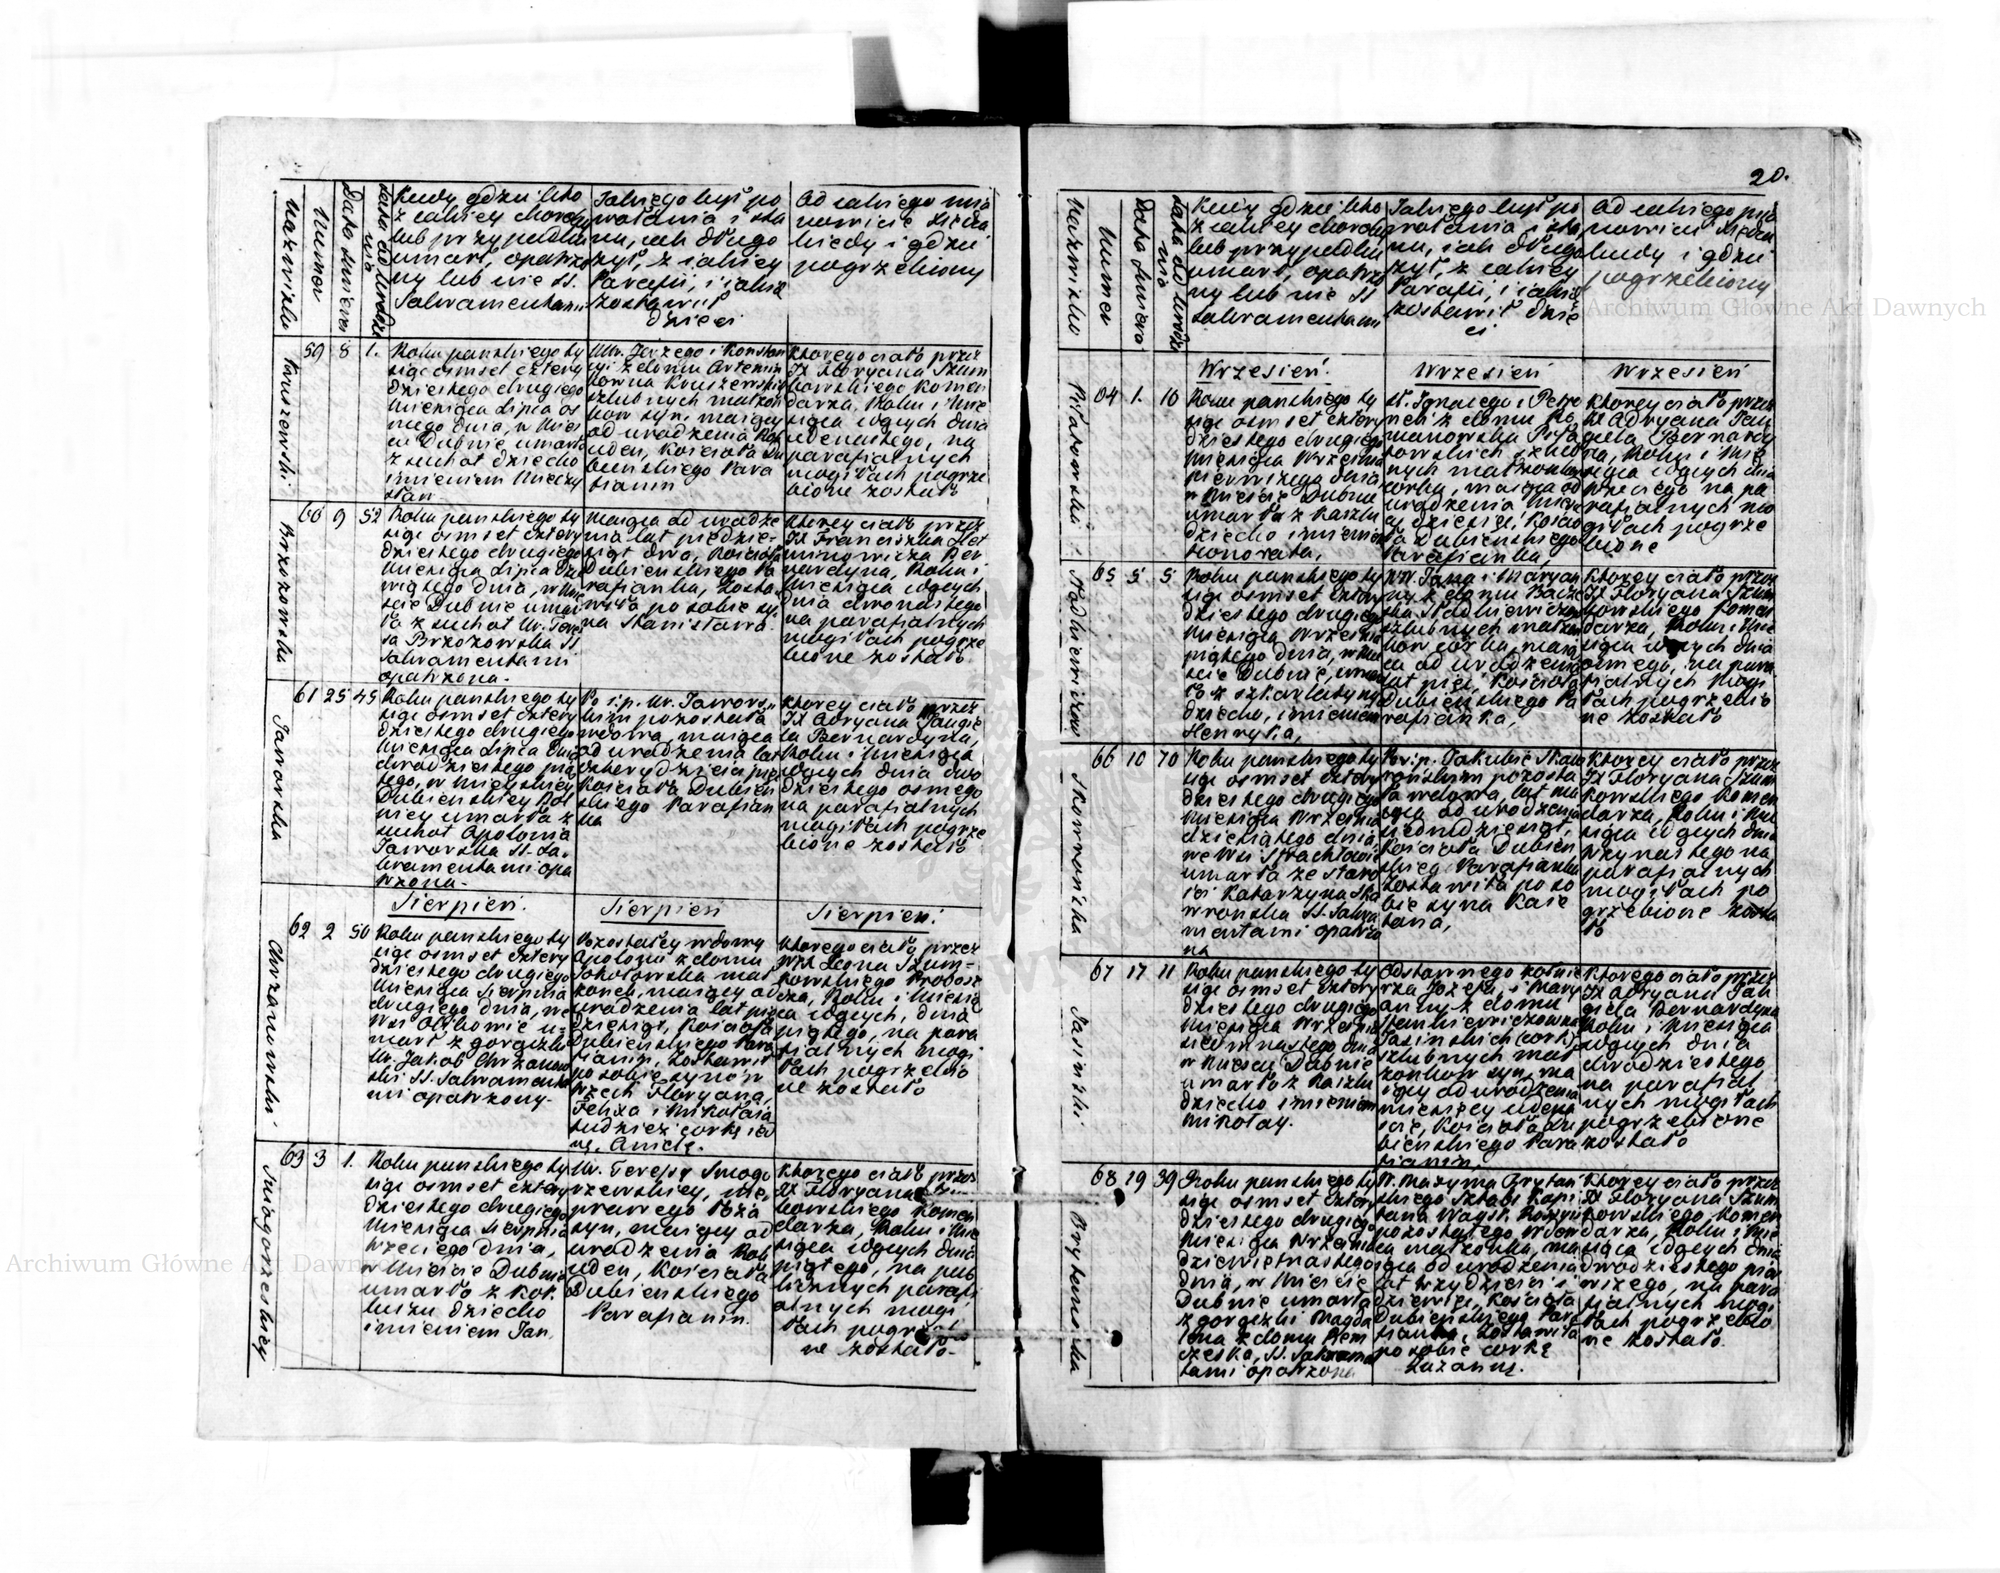 20.
Nazwisko
Numer
Data śmierci
Data od urodze
nia
Kiedy gdzie i kto
z jakiey choroby
lub przypadku
umarł, opatrzo
ny lub nie SS.
Sakramentami
Jakiego był po
wołania i sta
nu, jak długo
żył, z jakiey
Parafii, i jakie
zostawił
dzieci
Od jakiego
kiedy i gdzie
pogrzebiony
Kruszewski
59 8 1.
Roku pańskiego ty
siąc osmset cztery
dziestego drugiego
Miesiąca Lipca os
mego dnia, w Mieś
cie Dubnie umarło
z suchot dziecko
imieniem Mieczy
sław
Ur. Jerzego i Konstan
cyi z domu Artemin
towna Kruszewskich
szlubnych małżon
kow syn, maiący
od urodzenia Rok
ieden, Kościoła Du
bieńskiego Para
fianin
Ktorego ciało przez
JX Floryana Szum
kowskiego Komen
darza, Roku i Mie
siąca idących dnia
iedenastego, na
parafialnych
mogiłach pogrze
bione zostało
Brzozowska
60 9 52
Roku pańskiego ty
siąc osmset cztery
dziestego drugiego
Miesiąca Lipca dzie
wiątego dnia, w Mie
ście Dubnie umar
ła z suchot Ur. Tere
sa Brzozowska SS.
Sakramentami
opatrzona.
Maiąca od urodze
nia lat pięćdzie
siąt dwa, Kościoła
Dubieńskiego Pa
rafianka, Zosta
wiła po sobie sy
na Stanisława.
Ktorey ciało przez
JX Franciszka Het
minowicza Ber
nardyna, Roku i
Miesiąca idących
dnia dwonastego
na parafialnych
mogiłach pogrze
bione zostało
Jaworska
61 25 45
Roku pańskiego ty
siąc osmset cztery
dziestego drugiego
Miesiąca Lipca dnia
dwudziestego pią
tego, w Mieyskiey
Dubieńskiey Pol
nicy umarła z
suchot Apolonia
Jaworska SS. Sa
kramentami opa
trzona.
Po ś.p. Ur. Jawors
kim pozostała
wdowa, maiąca
od urodzenia lat
czterydzieści pięć
Kościoła Dubień
skiego Parafian
ka
Ktorey ciało przez
JX Adryana Taugie
la Bernardyna,
Roku i Miesiąca
idących dnia dwu
dziestego osmego
na parafialnych
mogiłach pogrze
bione zostało
Sierpień.
Sierpień
Sierpień.
Chrzanowski
62 2 50
Roku pańskiego ty
siąc osmset cztery
dziestego drugiego
Miesiąca Sierpnia
drugiego dnia, we
Wsi u
marł z gorączki
Ur. Jakob Chrzanow
ski SS. Sakramenta
mi opatrzony.
Pozostałey wdowy
Apolonii z domu
Sokołowska mał
żonek, maiący od
urodzenia lat pięć
dziesiąt, Kościoła
Dubieńskiego Para
fianin, Zostawił
po sobie synów
trzech Floryana,
Felixa i Mikołaia
tudzież corkę ied
nę, Anielę.
Ktorego ciało przez
JX Leona Szum
kowskiego Probosz
cza, Roku i Miesią
ca idących, dnia
piątego, na para
fialnych mogi
łach pogrzebio
ne zostało
Smogorzewskiey
63 3 1.
Roku pańskiego ty
siąc osmset cztery
dziestego drugiego
Miesiąca Sierpnia
trzeciego dnia,
w Mieście Dubnie
umarło z Koł
dziecko
imieniem Jan.
Ur. Teresy Smogo
rzewskiey, nie
prawego łoża
syn, maiący od
urodzenia Rok
ieden, Kościoła
Dubieńskiego
Parafianin.
Ktorego ciało przez
JX Floryana Szum
kowskiego Komen
darza, Roku i Mie
siąca idących dnia
piątego, na pub
licznych parafi
alnych mogi
łach pogrzebio
ne zostało.
Nazwisko
Numer
Data śmierci
Data od urodze
nia
Kiedy gdzie i kto
z jakiey choroby
lub przypadku
umarł, opatrzo
ny lub nie SS
Sakramentami
Jakiego był po
wołania i sta
nu, jak długo
żył, z jakiey
Parafii, i jakie
zostawił dzie
ci
Od jakiego
kiedy i gdzie
pogrzebiony
Wrzesień.
Wrzesień
Wrzesień
64 1. 10
Roku pańskiego ty
siąc osmset cztery
dziestego drugiego
Miesiąca Września
pierwszego dnia
w Mieście Dubnie
umarła z Kaszlu
dziecko imieniem
Honorata,
St. Ignacego i Petro
neli z domu Ro
manowska
nych małżonkow
corka, maiąca od
urodzenia
Dubieńskiego
Parafianka,
Ktorey ciało przez
JX Adryana Tau
giela Bernardy
na, Roku i Mie
siąca idących dnia
trzeciego na pa
rafialnych mo
giłach pogrze
bione
Stadkiewiczow
65 5 5
Roku pańskiego ty
siąc osmset cztery
dziestego drugiego
Miesiąca Września
piątego dnia, w Mie
ście Dubnie, umar
ło z szkarlatyny
dziecko, imieniem
Henryka,
szlubnych małżon
kow corka, maią
ca od urodzenia
lat pięć, Kościoła
Dubieńskiego Pa
rafianka,
Ktorey ciało przez
JX Floryana Szum
kowskiego Komen
darza, Roku i Mie
siąca idących dnia
osmego, na para
fialnych mogi
łach pogrzebio
ne zostało
Skowrońska
66 10 70
Roku pańskiego ty
siąc osmset cztery
dziestego drugiego
Miesiąca Września
dziesiątego dnia
we Wsi Strachłowie
umarła ze staro
ści Katarzyna Sko
wrońska SS. Sakra
mentami opatrzo
na
Po ś.p. Jakubie Skow
rońskim pozosta
ła wdowa, lat ma
iąca od urodzenia
siedmdziesiąt,
Kościoła Dubień
skieg Parafianka
Zostawiła po so
bie syna Kaie
tana,
Ktorey ciało przez
JX Floryana Szum
kowskiego Komen
darza, Roku i Mie
siąca idących dnia
trzynastego na
parafialnych
mogiłach po
grzebione zosta
ło
Jasiński
67 17 11
Roku pańskiego ty
siąc osmset cztery
dziestego drugiego
Miesiąca Września
siedmnastego dnia
w Mieście Dubnie
umarło z Kaszlu
dziecko imieniem
Mikołay.
Odstawnego żołnie
rza Jozefa, i Mary
anny z domu
Stankiewiczowna
Jasińskich
szlubnych mał
żonkow syn, ma
iący od urodzenia
miesięcy iedena
ście, Kościoła Du
bieńskiego Para
fianin,
Ktorego ciało przez
JX Adryana Tau
giela Bernardyna
Roku i Miesiąca
idących dnia
dwudziestego
na parafial
nych mogiłach
pogrzebione
zostało
68 19 39
Roku pańskiego ty
siąc osmset cztery
dziestego drugiego
Miesiąca Września
dziewiętnastego
dnia, w Mieście
Dubnie umarła
z gorączki Magda
lena z domu Niem
czeska, SS. Sakramen
tami opatrzona
pozostałego Wdow
ca małżonka, ma
iąca od urodzenia
lat trzydzieści i
dziewięć, Kościoła
Dubieńskiego Para
fianka, Zostawiła
po sobie corkę
Zuzannę.
Ktorey ciało przez
JX Floryana Szum
kowskiego Komen
darza, Roku i Mie
siąca idących dnia
dwudziestego pier
wszego, na para
fialnych mogi
łach pogrzebio
ne zostało.
Archiwum Główne Akt Dawnych
Archiwum Główne Akt Dawnych